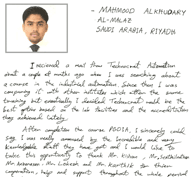 - MAHMOOD ALKHUDARY
AL-MALAZ
SAUDI ARABIA, RIYADH
I received a mail from Technocrat Automation
about a couple of months ago when I was searching about
a course in the industrial automation. Since then I was
comparing it with other institutes which within the same
teaching but eventually I decided Technocrat could be the
best option based on the lab facilities and the accreditation
they achieved lately.
After completing the course PGDIA, I sincerely could
say I was really amazed by the incredible and very
knowledgeable staff they have got and I would like to
take this opportunity to thank Mr. Kishore, Mr.
Mr. Mr. Lokesh and Mr. Karthik for their
cooperation, help and support throughout the whole period